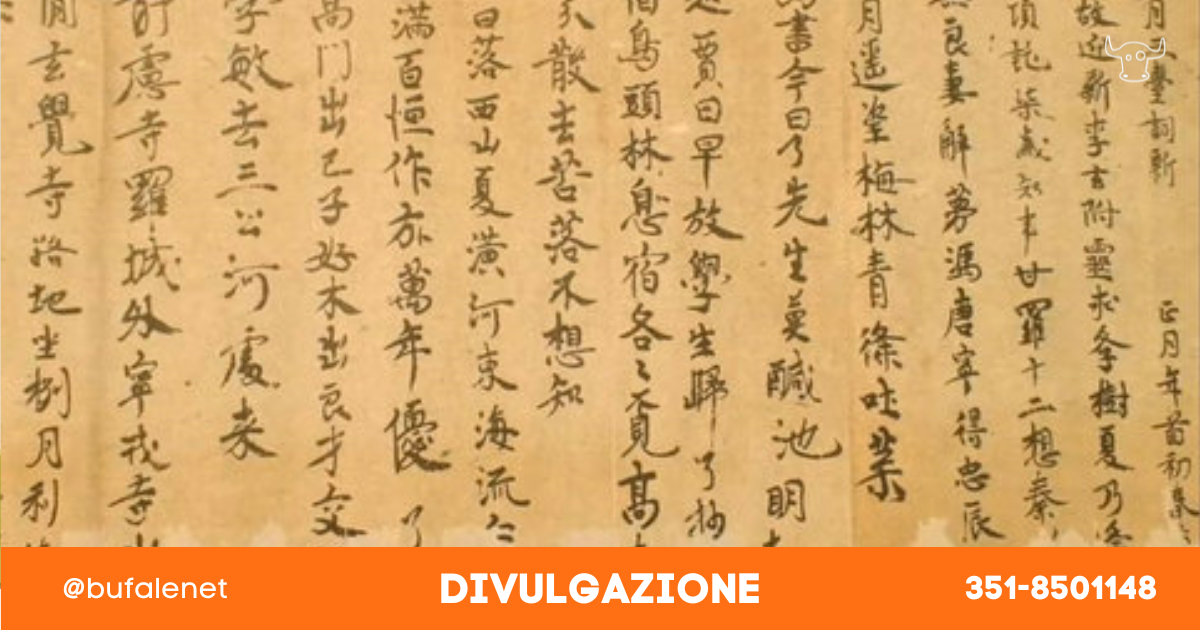 臺詞新 正月年首初春
故迎新李玄附靈求冬樹夏乃
項託柒歲知事甘羅十二想秦
良妻解夢馮唐寧得忠辰
月遥望梅林青條吐葉
書今日了先生莫醎池明
賈日早放學生歸了
鳥頭林息宿各々覓高
散去苦落不想知
日落西山夏潢河東海流
滿百恒作万萬年優
高門出己子好木出良才交
學敏去三公河處来
慮寺羅城外寧戎寺
玄覺寺路地坐捌月利
@bufalenet
DIVULGAZIONE
351-8501148